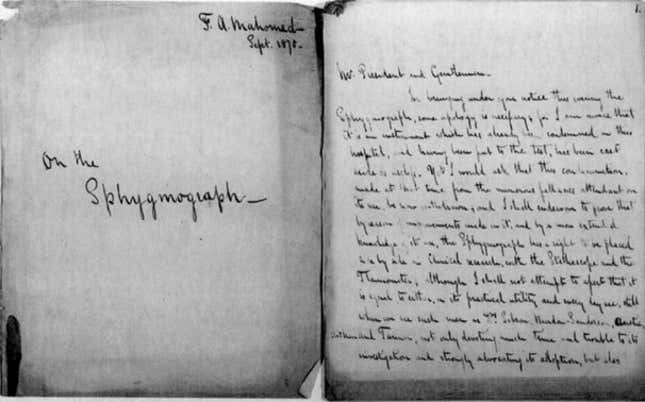 F. A. Mahomed
Sept. 1870.
On the
Sphygmograph
1.
Mr. President and Gentlemen.
In bringing under your notice this evening the
Sphygmograph, some apology is necessary, for I am aware that
it is an instrument which has already been condemned in this
hospital, and having been put to the test, has been cast
aside as useless. Yet I would ask that this condemnation
made at that time from the numerous fallacies attendant on
its use, be now withdrawn; and I shall endeavour to prove that
by reason of improvements made in it, and by a more extended
knowledge of its use, the Sphygmograph has a right to be placed
side by side in clinical research, with the Stethoscope and the
Thermometer; although I shall not attempt to assert that it
is equal to either, in its practical utility and every day use, still
when we see such men as Drs. Sanderson,
and not only devoting much time and trouble to its
investigation and strongly advocating its adoption, but also